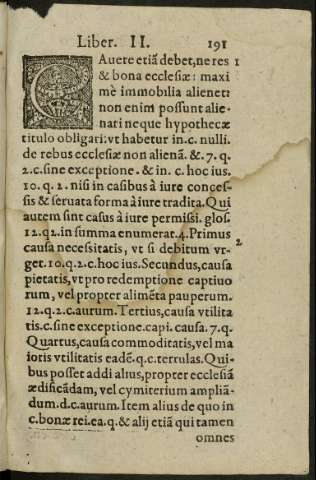 Liber. II. 191
CAuere etiã debet, ne res 1
& bona ecclesiæ: maxi
mè immobilia alienet:
non enim possunt alie-
nari neque hypothecæ
titulo obligari: vt habetur in. c. nulli.
de rebus ecclesiæ non alienã. &. 7. q.
2. c. sine exceptione. & in. c. hoc ius.
10. q. 2. nisi in casibus à iure conces-
sis & seruata forma à iure tradita. Qui
autem sint casus à iure permissi. glos.
12. q. 2. in summa enumerat. 4. Primus
causa necessitatis, vt si debitum vr- 2
get. 10. q. 2. c. hoc ius. Secundus, causa
pietatis, vt pro redemptione captiuo
rum, vel propter alimẽta pauperum.
12. q. 2. c. aurum. Tertius, causa vtilita
tis. c. sine exceptione. capi. causa. 7. q.
Quartus, causa commoditatis, vel ma
ioris vtilitatis eadẽ. q. c. terrulas. Qui-
bus posset addi alius, propter ecclesiã
ædificãdam, vel cymiterium ampliã-
dum. d. c. aurum. Item alius de quo in
c. bonæ rei. ea. q. & alij etiã qui tamen
omnes